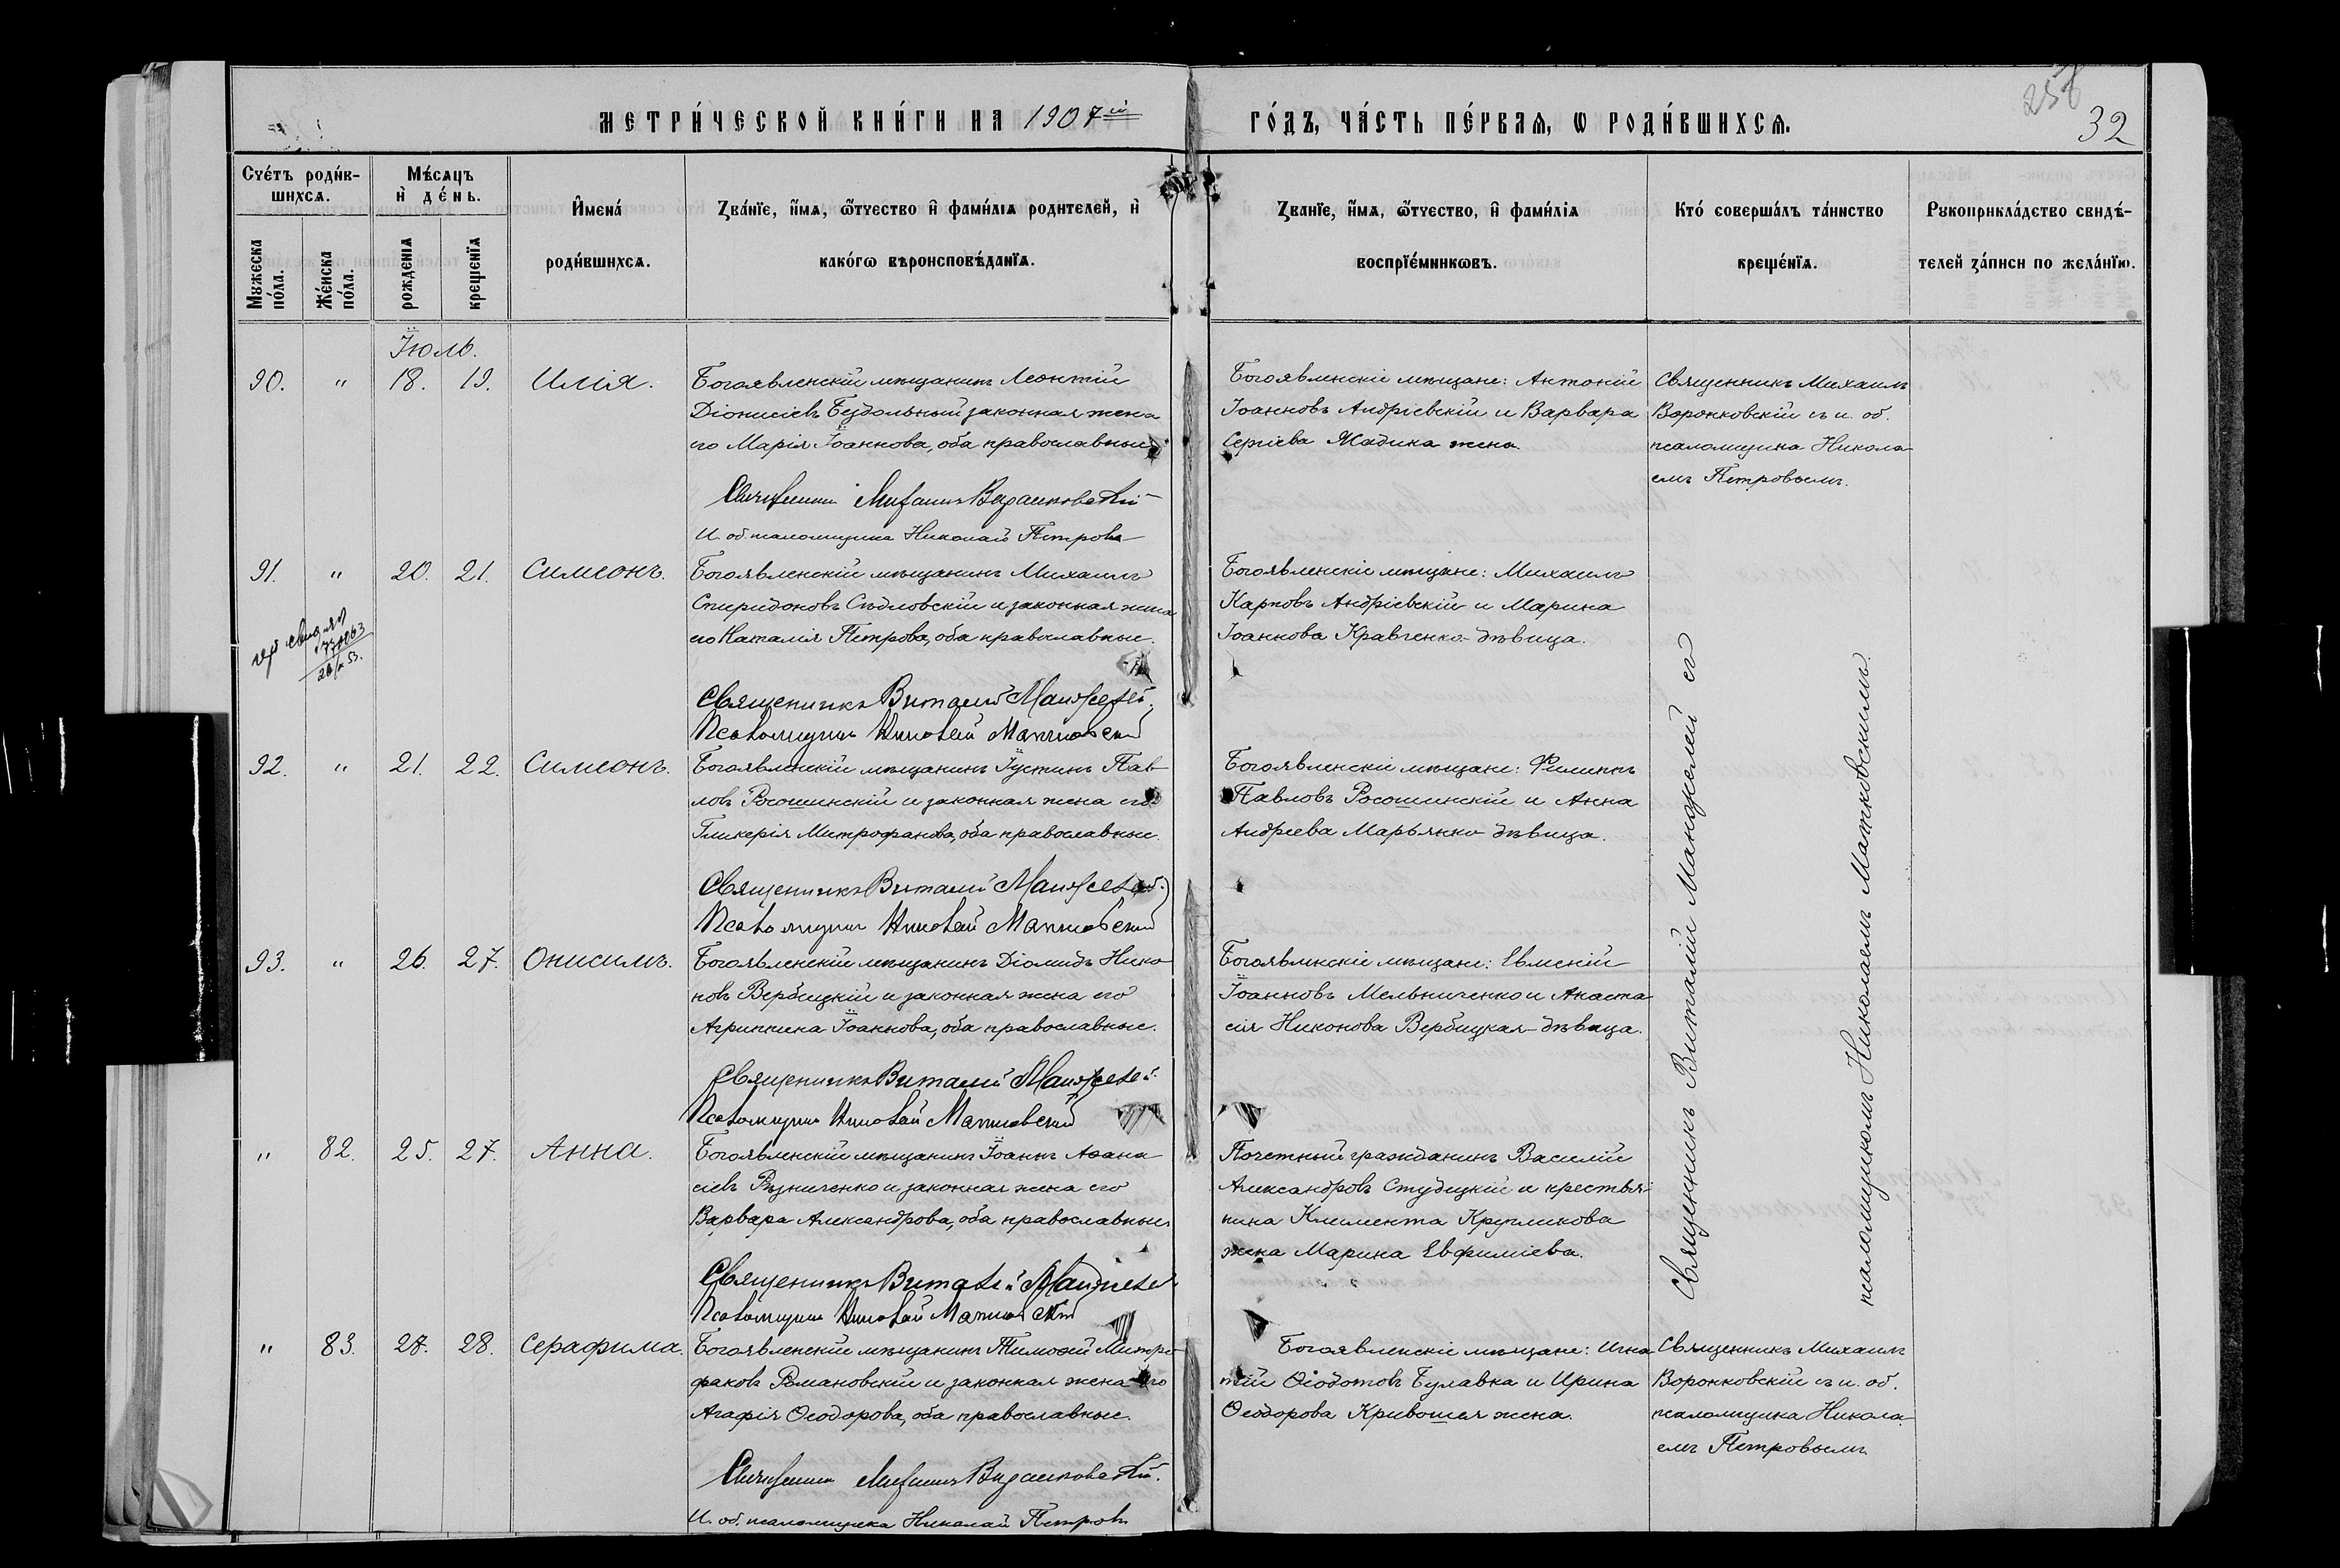 МЕТРИ́ЧЕСКОЙ КНИ́ГИ НА 1907й ГО́ДЪ, ЧА́СТЬ ПЕ́РВАѦ, Ѡ РОДИ́ВШИХСѦ.
258
32
Сче́тъ роди́в-
шихсѧ.
Мужеска по́ла.
Же́нска по́ла.
Мѣ́сѧцъ
и҆ де́нь.
рожденїѧ
крещенїѧ
И҆мена́
роди́вшихсѧ.
Зва́нїе, и҆́мѧ, ѻ҆́тчество и҆ фами́лїѧ родителей, и҆
како́гѡ вѣроисповѣ́данїѧ.
Званїе, и҆́мѧ, ѻ҆́тчество, и҆ фами́лїѧ
воспрїе́мникѡвъ.
Кто́ соверша́лъ та́инство
креще́нїѧ.
Рукоприкла́дство свидѣ́-
телей за́писи по жела́нїю.
Іюль.
90. " 18. 19. Илія.
Богоявленскій мѣщанинъ Леонтій
Діонисіевъ Бездольный законная жена
его Марія Іоаннова, оба православные
Священникъ Михаилъ Воронковскій
И. об. псаломщика Николай Петровъ
Богоявленскіе мѣщане: Антоній
Іоанновъ Андріевскій и Варвара
Сергіева Жадика жена.
Священникъ Михаилъ
Воронковскій съ и. об.
псаломщика Никола-
емъ Петровымъ.
91. " 20. 21. Симеонъ.
Богоявленскій мѣщанинъ Михаилъ
Спиридоновъ Сѣдловскій и законная жена
его Наталія Петрова, оба православные.
Священникъ Виталій Манжелей.
Псаломщикъ Николай Матковскій
Богоявленскіе мѣщане: Михаилъ
Карповъ Андріевскій и Марина
Іоаннова Кравченко-дѣвица.
92. " 21. 22. Симеонъ.
Богоявленскій мѣщанинъ Іустинъ Пав-
ловъ Росошинскій и законная жена его
Гликерія Митрофанова, оба православные.
Священникъ Виталій Манжелей.
Псаломщикъ Николай Матковскій
Богоявленскіе мѣщане: Филиппъ
Павловъ Росошинскій и Анна
Андреева Марьянко-дѣвица.
93. " 26. 27. Онисимъ.
Богоявленскій мѣщанинъ Діомидъ Нико-
новъ Вербицкій и законная жена его
Агриппина Іоаннова, оба православные.
Священникъ Виталій Манжелей.
Псаломщикъ Николай Матковскій
Богоявлнскіе мѣщане: Евменій
Іоанновъ Мельниченко и Анаста-
сія Никонова Вербицкая-дѣвица.
Священникъ Виталій Манжелей съ
псаломщикомъ Николаемъ Матковскимъ.
" 82. 25. 27. Анна.
Богоявленскій мѣщанинъ Іоаннъ Аѳана-
сіевъ Рѣзниченко и законная жена его
Варвара Александрова, оба православные.
Священникъ Виталій Манжелей
Псаломщикъ Николай Матковскій
Почетный гражданинъ Василій
Александровъ Студицкій и крестья-
нина Климента Крупликова
жена Марина Евфиміева.
" 83. 27. 28. Серафима.
Богоявленскій мѣщанинъ Тимоѳей Митро-
фановъ Романовскій и законная жена его
Агафія Ѳеодорова, оба православные.
Священникъ Михаилъ Воронковскій.
И. об. псаломщика Николай Петровъ
Богоявленскіе мѣщане: Игна-
тій Ѳеодотовъ Булавка и Ирина
Ѳеодорова Кривошея жена.
Священникъ Михаилъ
Воронковскій съ и. об.
псаломщика Никола-
емъ Петровымъ